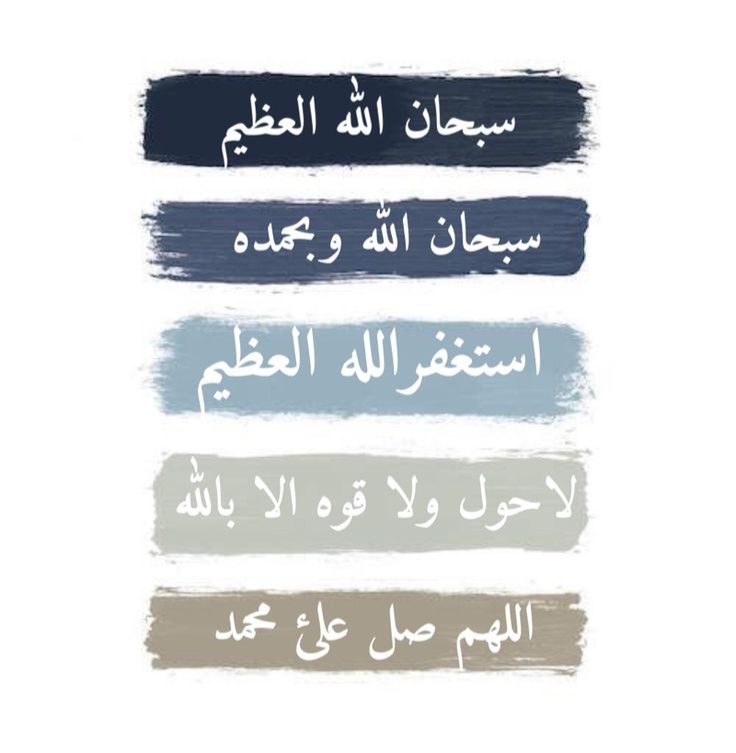 سبحان الله العظيم
سبحان الله وبحمده
استغفرالله العظيم
لاحول ولا قوه الا بالله
اللهم صل علئ محمد